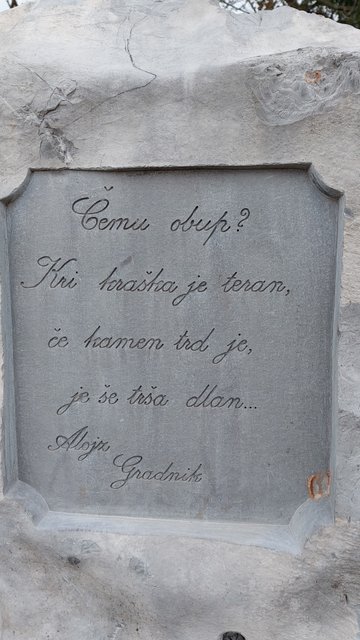 Čemu obup?
Kri kraška je teran,
če kamen trd je,
je še trša dlan...
Alojz
Gradnik